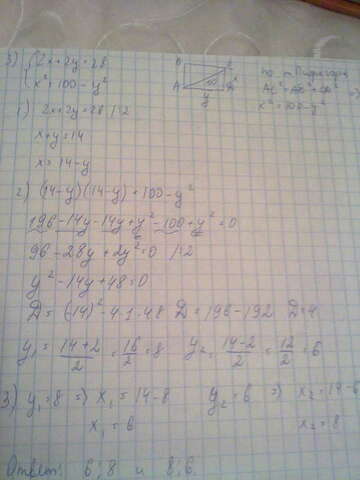 3) { 2x+2y=28
x²=100-y²
B C
A D
10
y
по т. Пифагора
x²=100-y²
1) 2x+2y=28 |:2
x+y=14
x=14-y
2) (14-y)(14-y)=100-y²
196-14y-14y+y²-100+y²=0
96-28y+2y²=0 |:2
y²-14y+48=0
D=(-14)²-4·1·48 D=196-192 D=4
y₁=(14+2)/2=16/2=8 y₂=(14-2)/2=12/2=6
3) y₁=8 ⇒ x₁=14-8 y₂=6 ⇒ x₂=14-6
x₁=6 x₂=8
Ответ: 6;8 и 8;6.